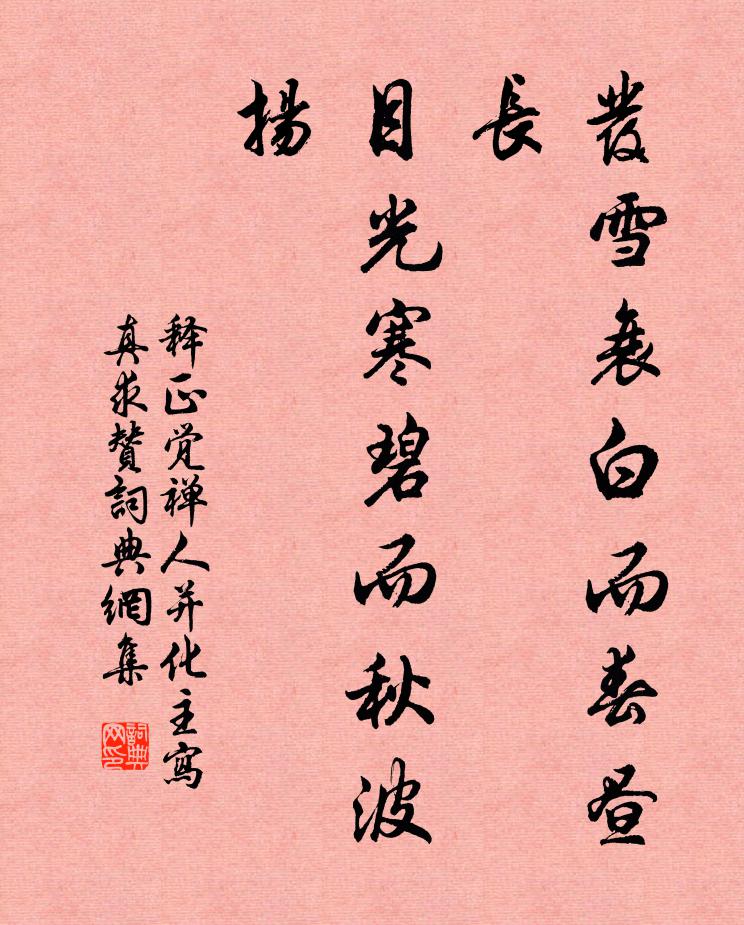 發雪衰白而春昼
長
目光寒碧而秋波
揚
释正觉禅人并化主寫
真求贊詞典網集
詞典
网印